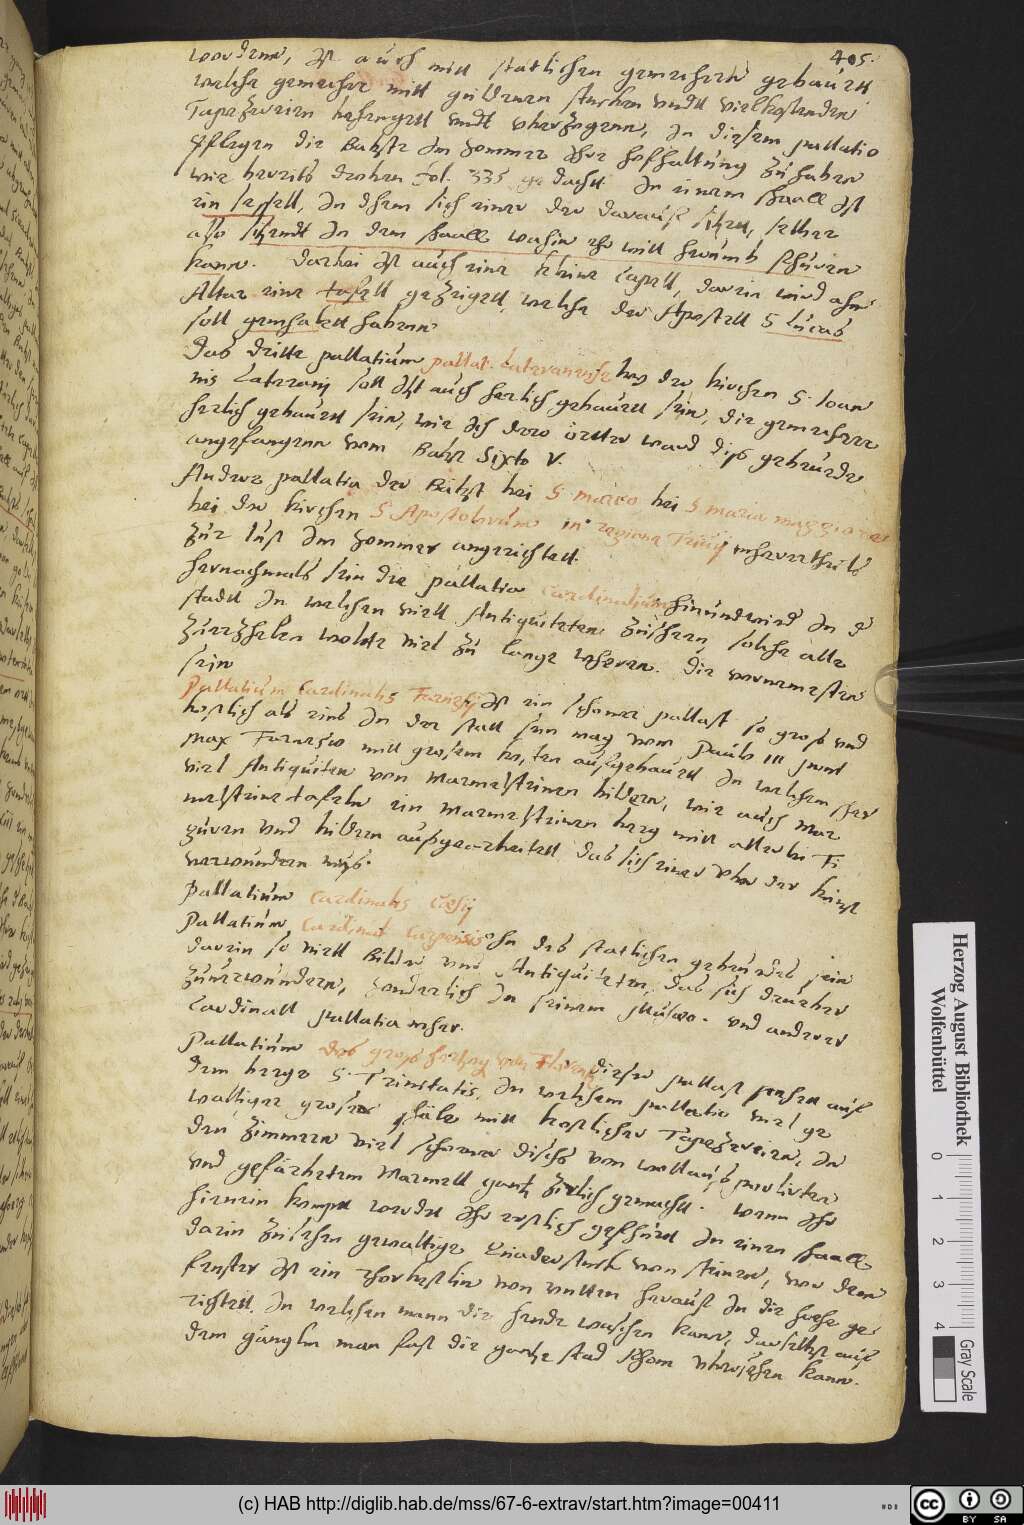 405.
wordenn, Ist auch mitt statlichen gemechern gebauett
welche gemecher mitt guldenen stucken undt vielkostenden
Tapezereien behengett undt uberzogenn, In diesem pallatio
pflegen die Babste Im Sommer Ihre hoffhalttung zu haben
wie bereits droben Fol. 335 gedacht. In einem Saall Ist
ein sessell, In dhem sich einer der darauff sitzett, selber
also sitzendt In dem Saall wohin ehr will herumb fhuren
kann. Darbei Ist auch eine kleine Capell, darin wird ahm
Altar eine tafell gezeigett, welche der Apostell S Lucas
soll gemhalett habenn
Das dritte pallatium pallat. Lateranense bey der kirchen S. Joan
nis Laterani soll Itzt auch herlich gebauett sein, die gemechere
herlich gebauett sein, wie Ich dero örtter ward diss gebeude
angefangenn vom Babst Sixto V.
Andere pallatia der Bäbst bei S. marco bei S. maria maggiore
bei der kirchen S. Apostolorum in regione Trivij mherertheils
zur lust Im Sommer angerichtett.
Hernachmals sein die pallatia Cardinalium hinundwid In d
stadtt In welchen viell Antiquiteten zusehen, solche alle
zuerzhelen wolte viel zu lange wheren. Die vornemesten
sein
Pallatium Cardinalis Farnesij Ist ein schoner pallast so gross und
kostlich als eins In der statt sein mag vom Paulo III
max Farnesio mitt grosem kosten auffgebauett In welchem sher
viel Antiquiten von Marmelsteinen bildern, wie auch Mar
melsteine tafeln ein Marmelsteinen berg mitt allerlei Fi
guren und bildern aussgearbeitett das sich einer uber der kunst
verwundern mus.
Pallatium Cardinalis Cæsij
Pallatium Cardinal Carpensis Ihn des statlichen gebeudes sein
darin so viell Bilder und Antiquiteten, das sich darüber
zuuerwundern, sonderlich In seinem Musæo. und anderer
Cardinall pallatia mher.
Pallatium des gross hertzog von Florentz dieser pallast stehett auff
dem berge S. Trinitatis, In welchem pallatio viel ge
waltiger grosse Säle mitt kostlicher Tapezereien, In
den Zimmern viel schoner disch von wollauss polirten
und geferbetem Marmell gantz zirlich gemacht. wenn Ihr
hienein kompt werdett Ihr erstlich gefhürett In einen Saall
darin zusehen gewaltige Quaderstuck von steinen, vor dem
fenster Ist ein thorheslin von unten herauff In die hoehe ge-
richtett. In welchen mann die hende waschen kann, daselbst auff
dem gänglin man fast die gantze stad schon ubersehen kann.
Herzog August Bibliothek
Wolfenbüttel
0 1 2 3 4
Gray Scale
(c) HAB http://diglib.hab.de/mss/67-6-extrav/start.htm?image=00411
cc BY SA